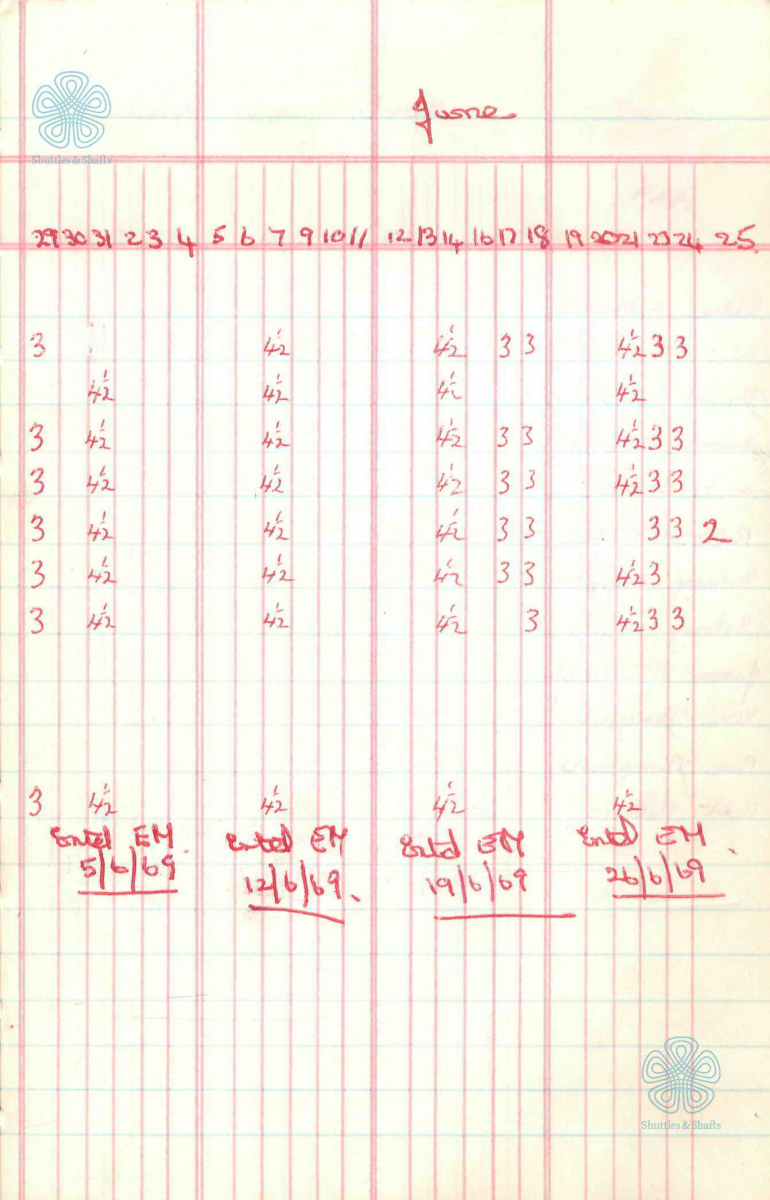 June
Shuttles & Shafts
29 30 31 2 3 4 5 6 7 9 10 11 12 13 14 16 17 18 19 20 21 23 24 25
3 4½ 4½ 3 3 4½ 3 3
4½ 4½ 4½ 4½
3 4½ 4½ 4½ 3 3 4½ 3 3
3 4½ 4½ 4½ 3 3 4½ 3 3
3 4½ 4½ 4½ 3 3 3 3 2
3 4½ 4½ 4½ 3 3 4½ 3
3 4½ 4½ 4½ 3 4½ 3 3
3 4½ 4½ 4½ 4½
Entd EM Entd EM Entd EM Entd EM
5/6/69 12/6/69 19/6/69 26/6/69
Shuttles & Shafts